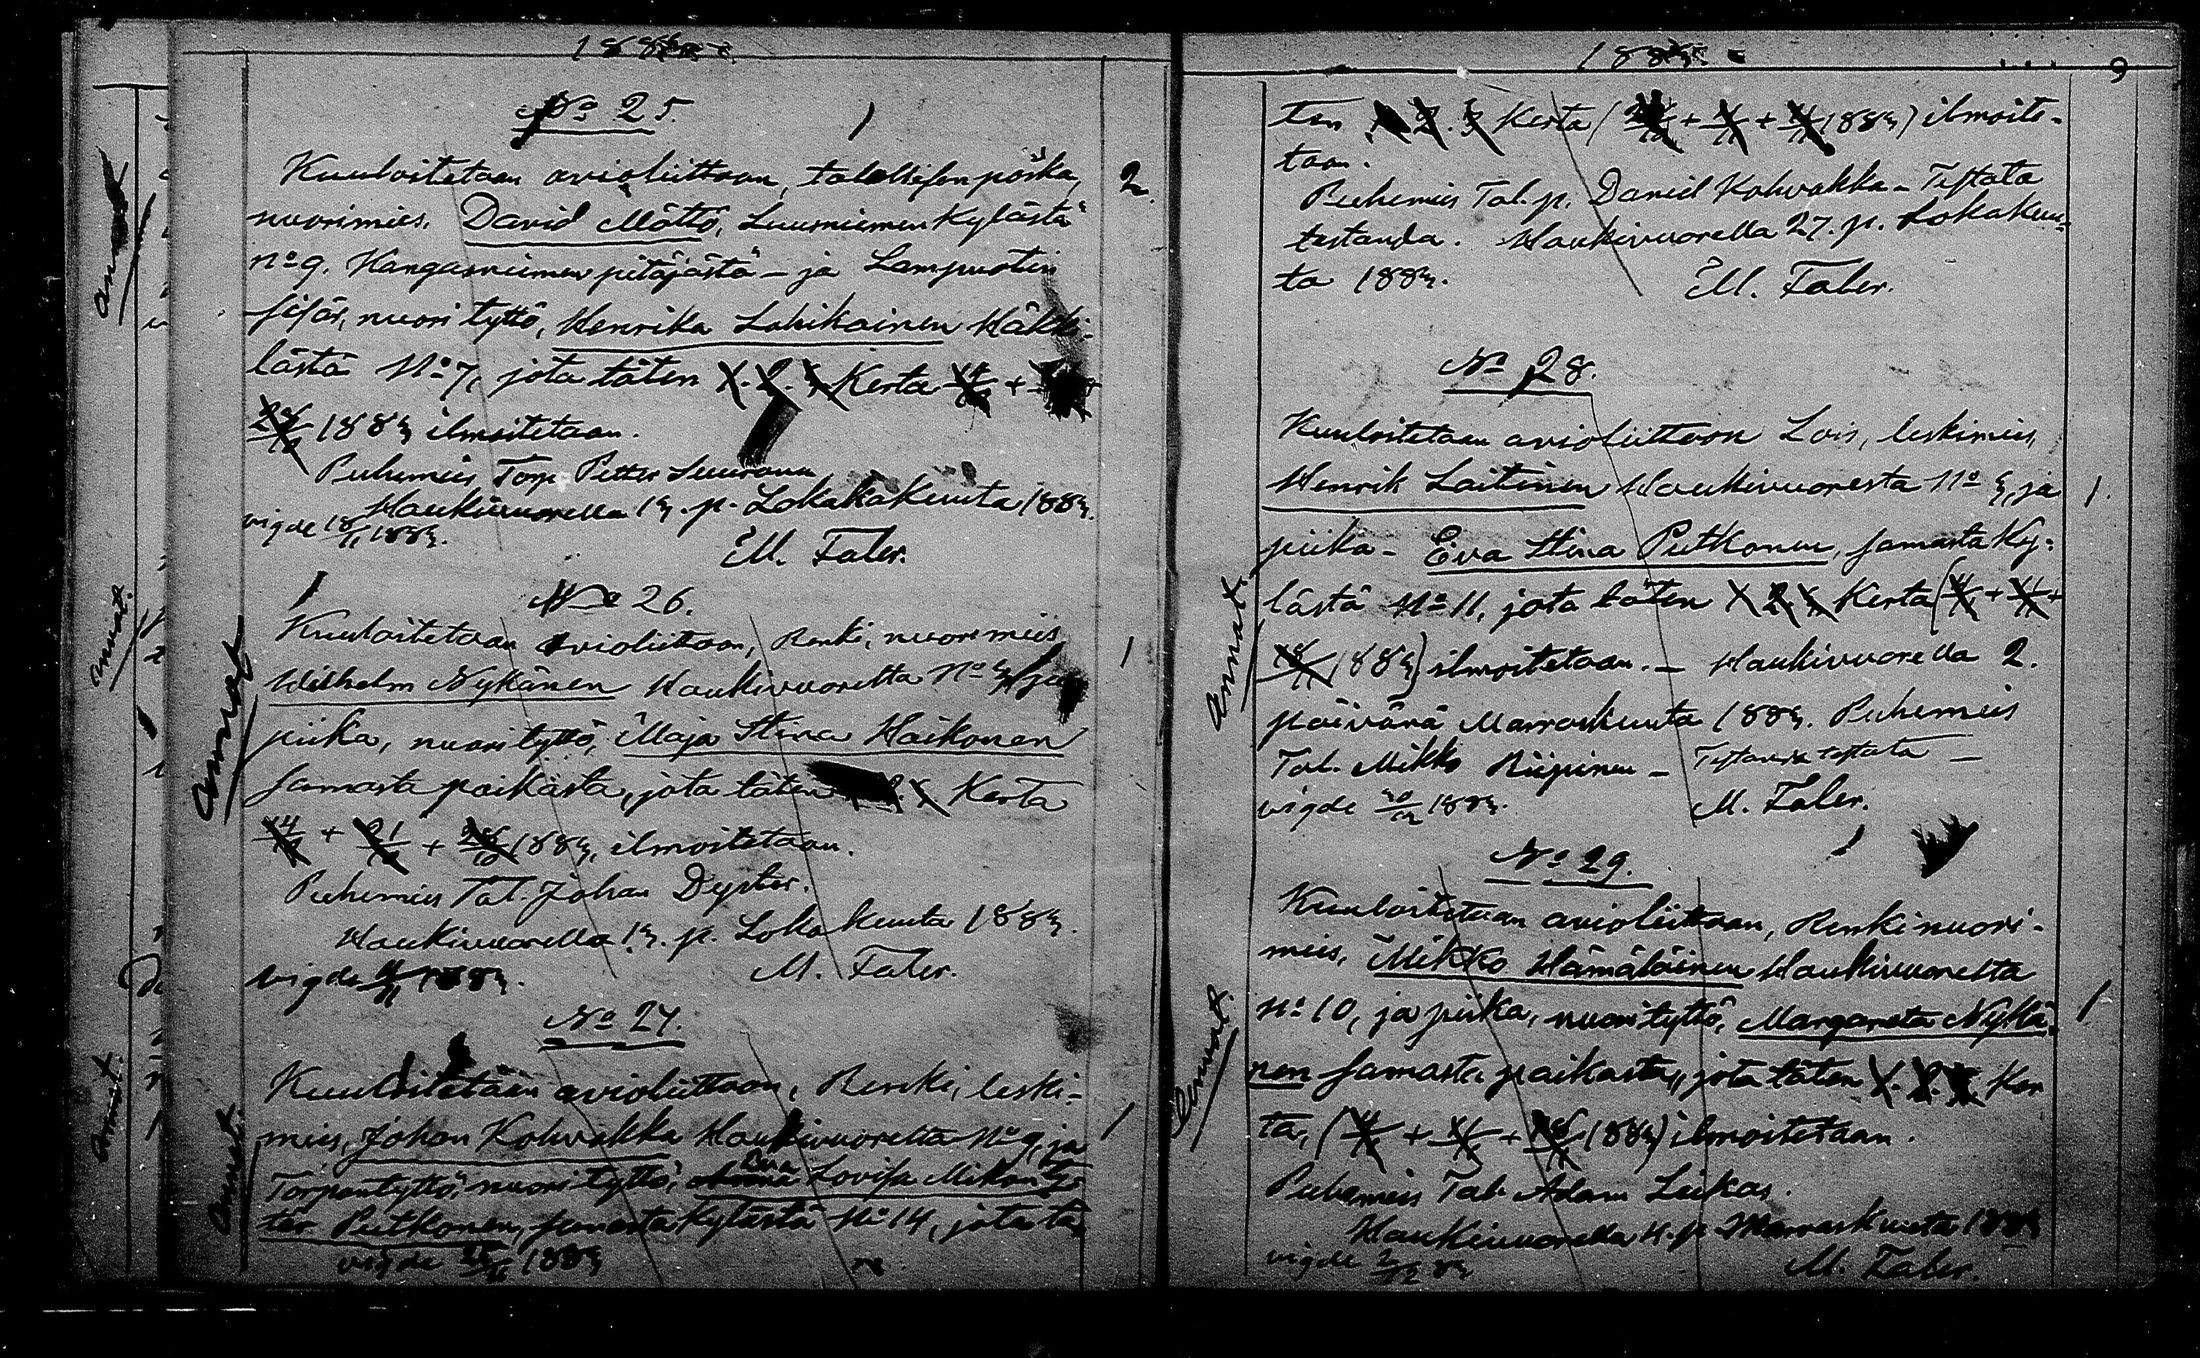 1883
No 25.
Kuuloitetaan avioliittoon, talollisen poika,
nuorimies, David Mättö, Luusniemen Kylästä
no 9. Kangasniemen pitäjästä – ja Lampuotin
sisar, nuori tyttö, Henrika Lohikainen Häkki-
lästä No 7, jota täten 1. 2. 3 Kerta 14/10 +
28/10 1883 ilmoitetaan.
Puhemies Torp. Petter Suuronen
Haukivuorella 13. p. Lokakakuuta 1883.
vigde 18/11 1883.
M. Faler.
2.
No 26.
Kuuloitetaan avioliittoon, Renki, nuorimies
Wilhelm Nykänen Haukivuorelta No 3, ja
piika, nuori tyttö, Maja Stina Haikonen
samasta paikasta, jota täten 3 Kerta
14/10 + 21/10 + 28/10 1883, ilmoitetaan.
Puhemies Tal. Johan Dyster.
Haukivuorella 13. p. Lokakuuta 1883.
vigde 1883.
M. Faler.
Annat
1
No 27.
Kuuloitetaan avioliittoon, Renki, leski-
mies, Johan Kohvakka Haukivuorelta No 9, ja
Torpantyttö, nuori tyttö, Eva Lovisa Mikontyt-
tär Putkonen, samasta Kylästä No 14, jota tä-
vigde 1883
Annat.
1
1883
9
ten 1. 2. 3 Kerta (28/10 + 4/11 + 11/11 1883) ilmoite-
taan.
Puhemies Tal. p. Daniel Kohvakka – Testata
testanda. Haukivuorella 27. p. Lokakuu-
ta 1883.
M. Faler.
No 28.
Kuuloitetaan avioliittoon Lois, leskimies,
Henrik Laitinen Haukivuoresta No 3, ja
piika – Eva Stina Putkonen, samasta Ky-
lästä No 11, jota täten 1 2. 3 Kerta (4/11 + 11/11 +
18/11 1883) ilmoitetaan. – Haukivuorella 2.
päivänä Marraskuuta 1883. Puhemies
Tal. Mikko Riipinen – Testanda testata –
vigde 30/12 1883.
M. Faler.
Annat.
1.
No 29.
Kuuloitetaan avioliittoon, Renki nuori-
mies, Mikko Hämäläinen Haukivuorelta
No 10, ja piika, nuori tyttö, Margareta Nykä-
nen samasta paikasta, jota täten 1. 2. 3. Ker
ta, (4/11 + 11/11 + 18/11 1883) ilmoitetaan.
Puhemies Tal. Adam Liukas.
Haukivuorella 4. p Marraskuuta 1883
vigde 2/12 83
M. Faler.
Annat.
1